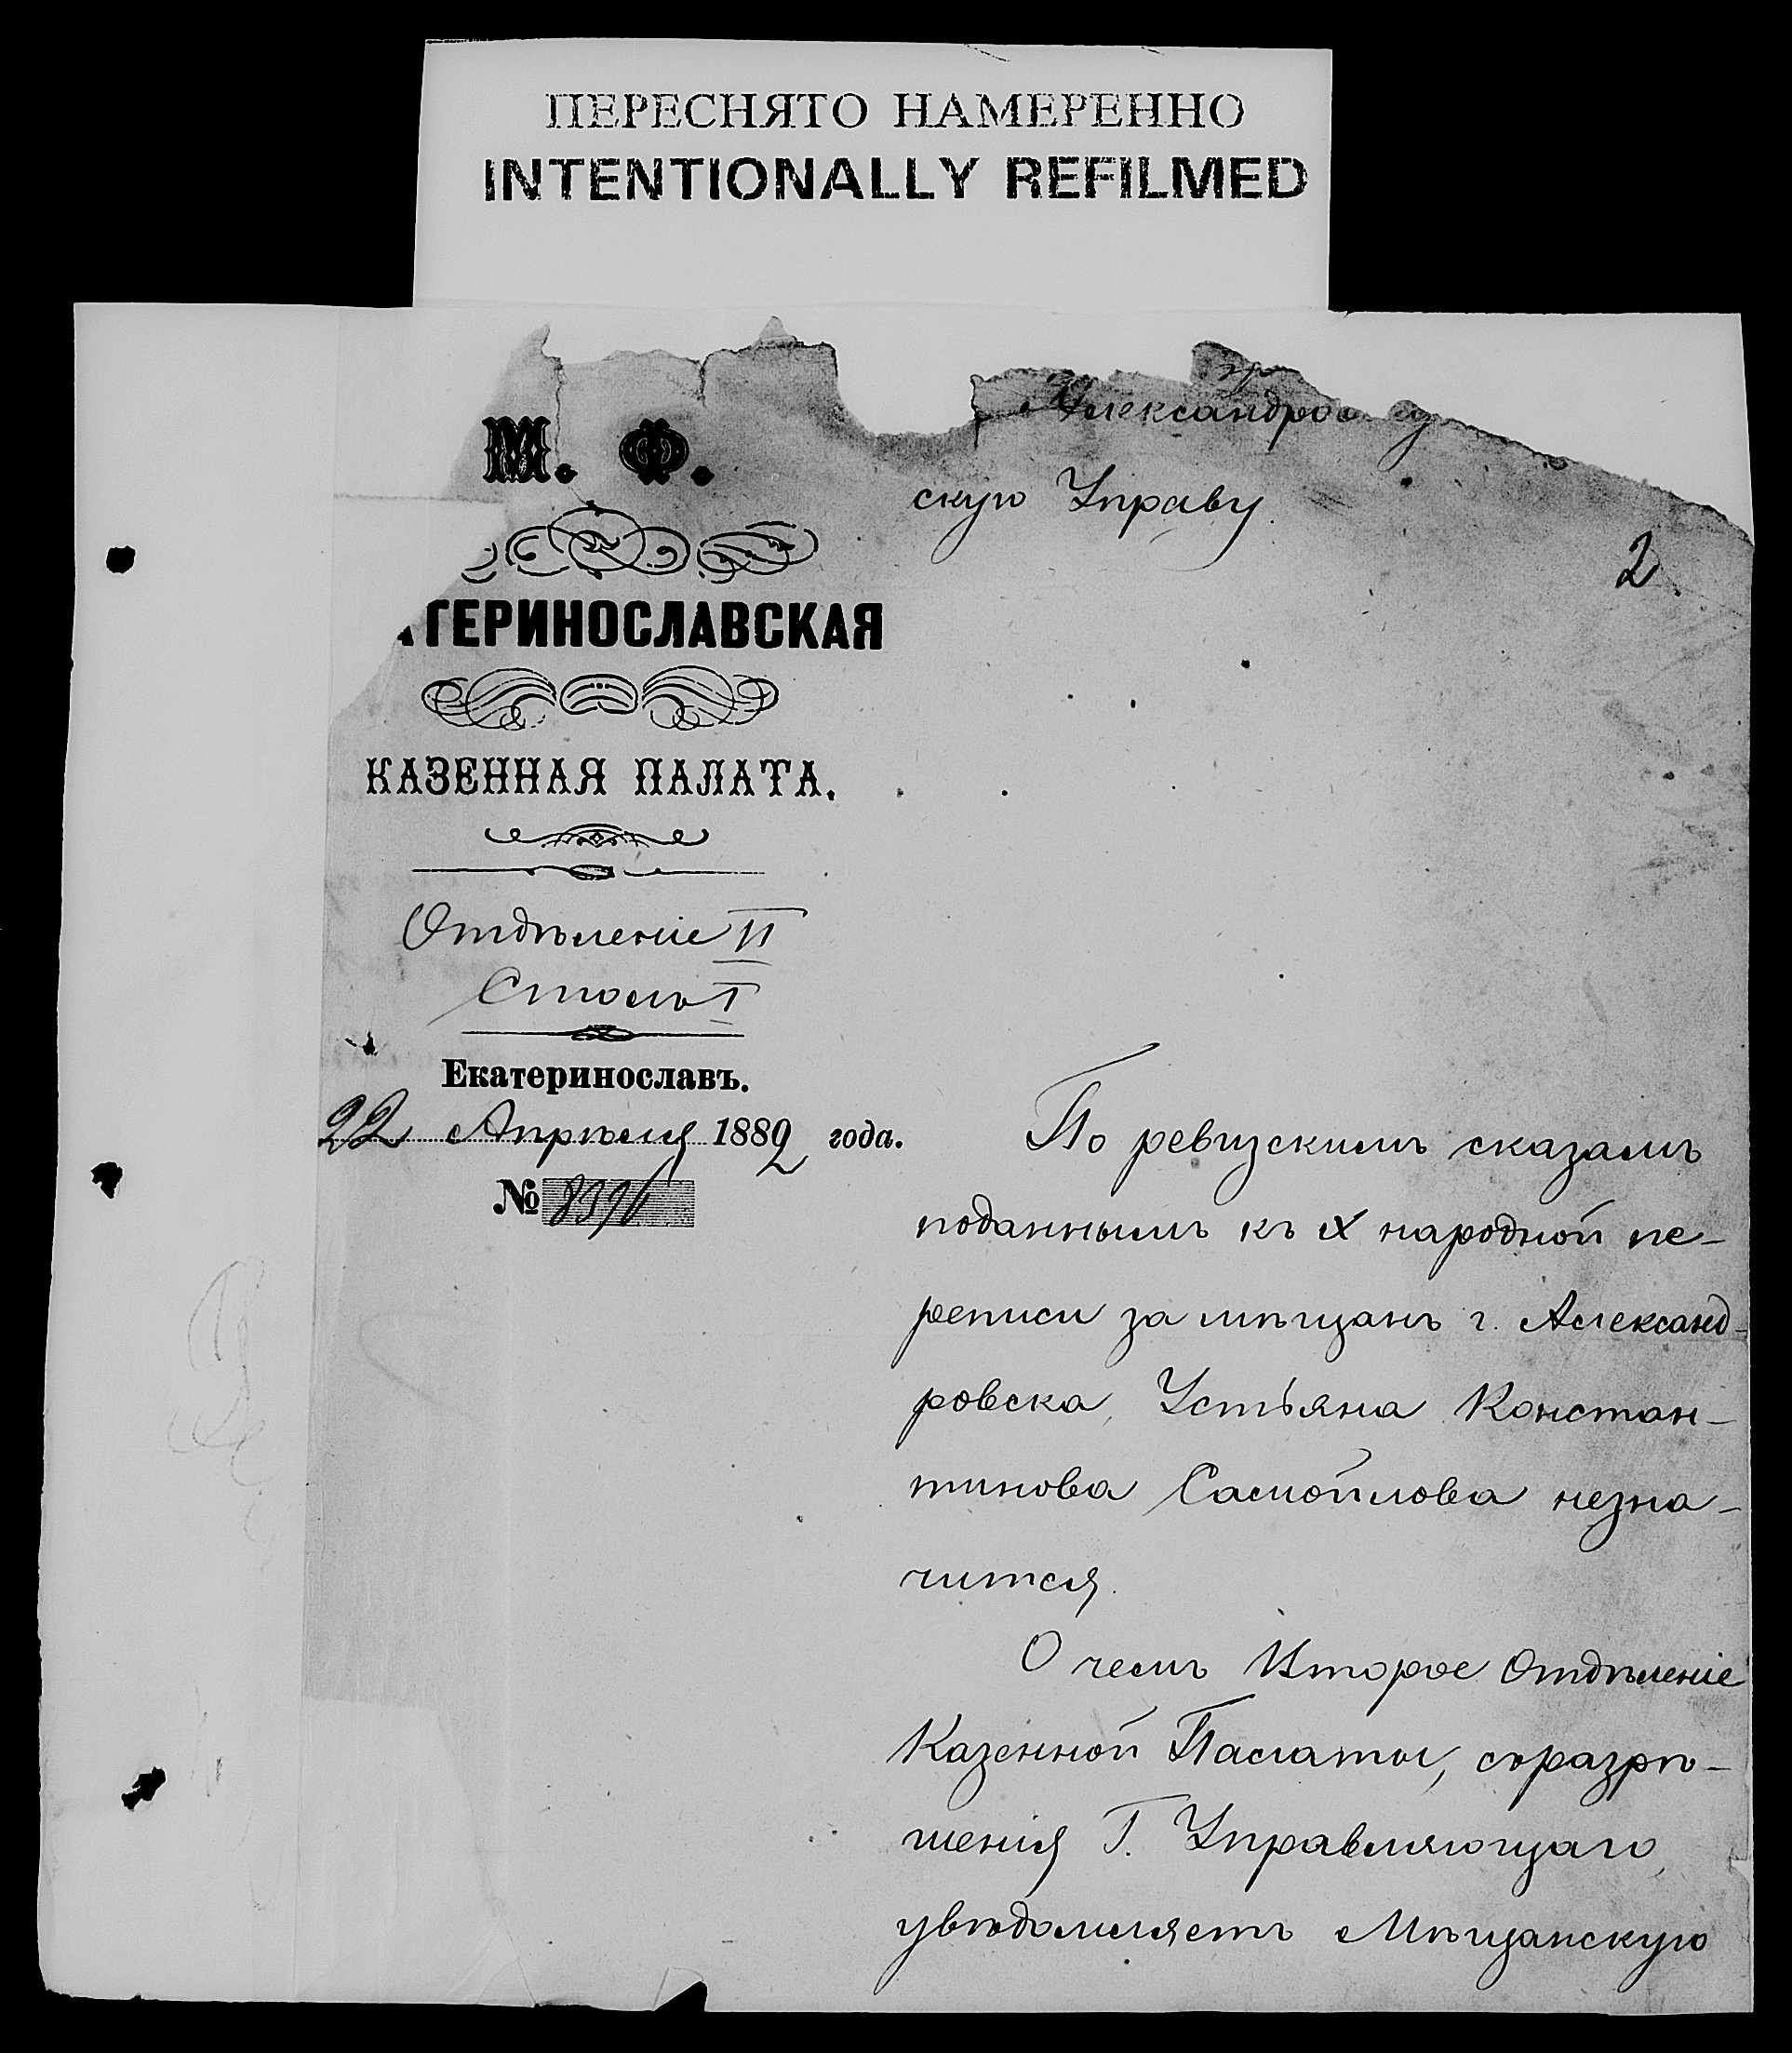 ПЕРЕСНЯТО НАМЕРЕННО
INTENTIONALLY REFILMED
М. Ф.
АТЕРИНОСЛАВСКАЯ
КАЗЕННАЯ ПАЛАТА.
Отдѣленіе II
Столъ I
Екатеринославъ.
22 Апрѣля 1882 года.
№ 8396
Александров
скую Управу.
2
По ревизскимъ сказамъ
поданнымъ къ X народной пе-
реписи за мѣщанъ г. Александ-
ровска, Устьяна Констан-
тинова Самойлова незна-
чится.
О чемъ Второе Отдѣленіе
Казенной Палаты, съразрѣ-
шенія Г. Управляющаго,
увѣдомляетъ Мѣщанскую